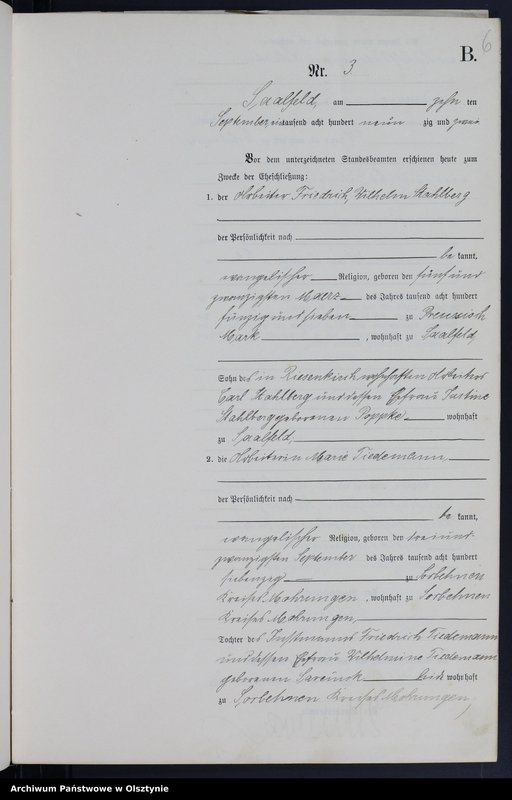 B. 6
Nr. 3
Saalfeld, am zehn ten
September eintausend acht hundert neun zig und zwei
Vor dem unterzeichneten Standesbeamten erschienen heute zum
Zwecke der Eheschließung:
1. der Arbeiter Friedrich, Wilhelm Stahlberg
der Persönlichkeit nach
be kannt,
evangelischer Religion, geboren den fünf und
zwanzigsten Maerz des Jahres tausend acht hundert
fünfzig und sieben zu Preussisch
Mark, wohnhaft zu Saalfeld,
Sohn des in Riesenkirch wohnhaften Arbeiters
Carl Stahlberg und dessen Ehefrau Justine
Stahlberg geborenen Poppke wohnhaft
zu Saalfeld,
2. die Arbeiterin Marie Tiedemann,
der Persönlichkeit nach
be kannt,
evangelischer Religion, geboren den drei und
zwanzigsten September des Jahres tausend acht hundert
siebenzig zu Sorbehnen
Kreises Mohrungen, wohnhaft zu Sorbehnen
Kreises Mohrungen,
Tochter des Instmanns Friedrich Tiedemann
und dessen Ehefrau Wilhelmine Tiedemann
geborenen beide wohnhaft
zu Sorbehnen Kreises Mohrungen,
Archiwum Państwowe w Olsztynie